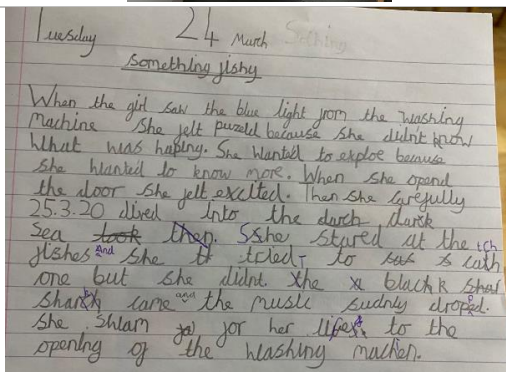 Tuesday 24 March
Something fishy
When the girl saw the blue light from the washing
machine she felt puzzeld because she didn't know
what was haping. She wanted to exploe because
she wanted to know more. When she opend
the door she felt excited. Then she carefully
25.3.20 dived into the darck
sea then. Sshe stared at the
fishes And she tried to catch
one but she didnt. The black
shark came and the music sudnly droped.
She swam for her lifes to the
opening of the washing machen.